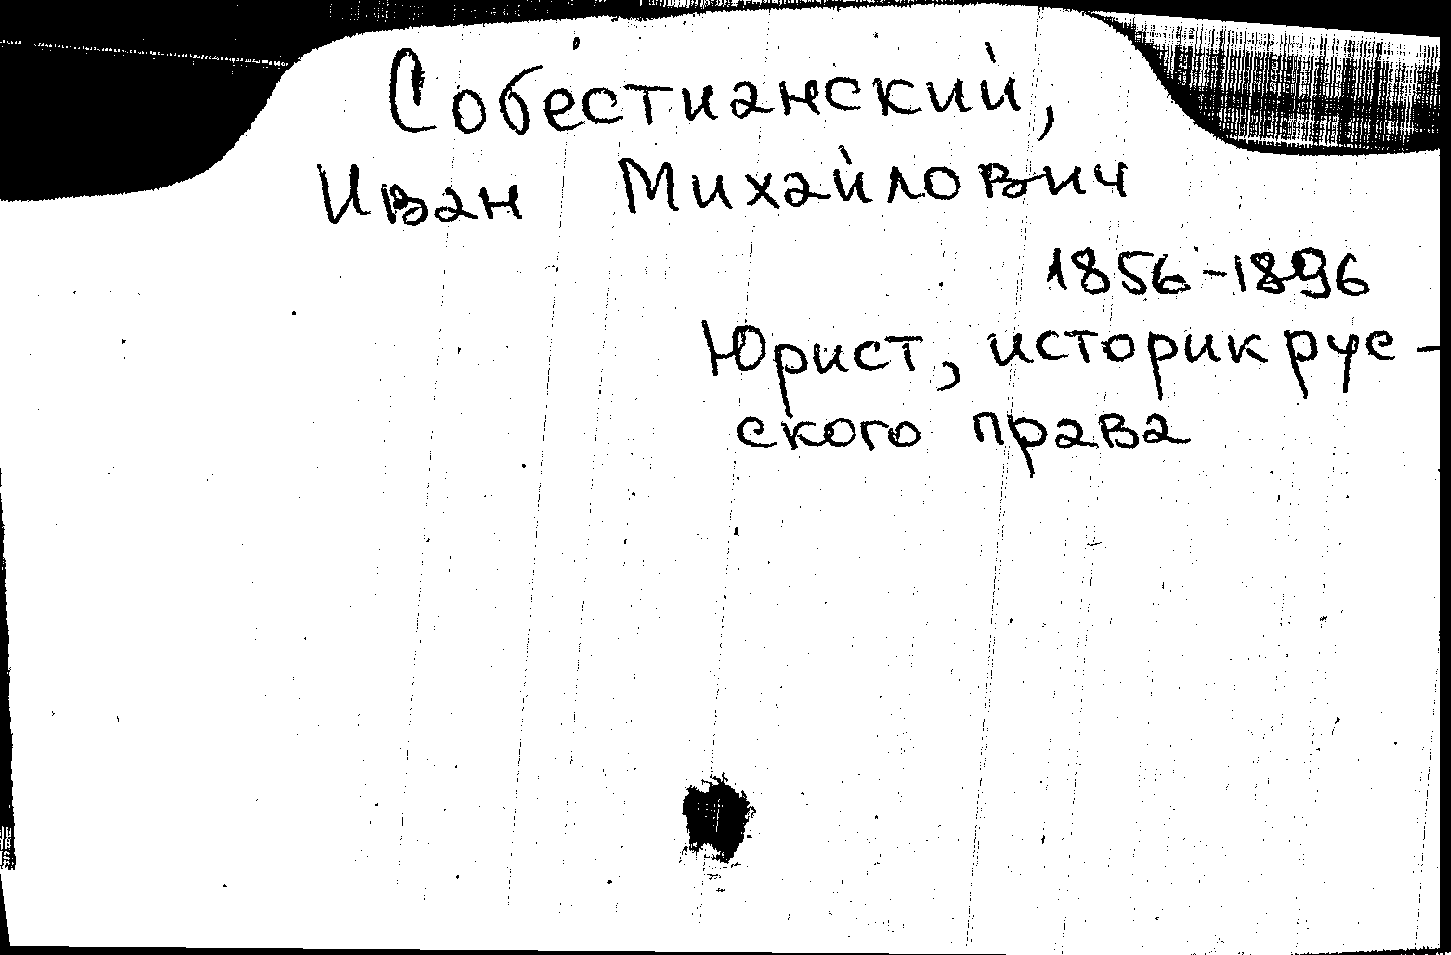 Собестианский,
Иван Михайлович
1856-1896
Юрист, историк рус-
ского права